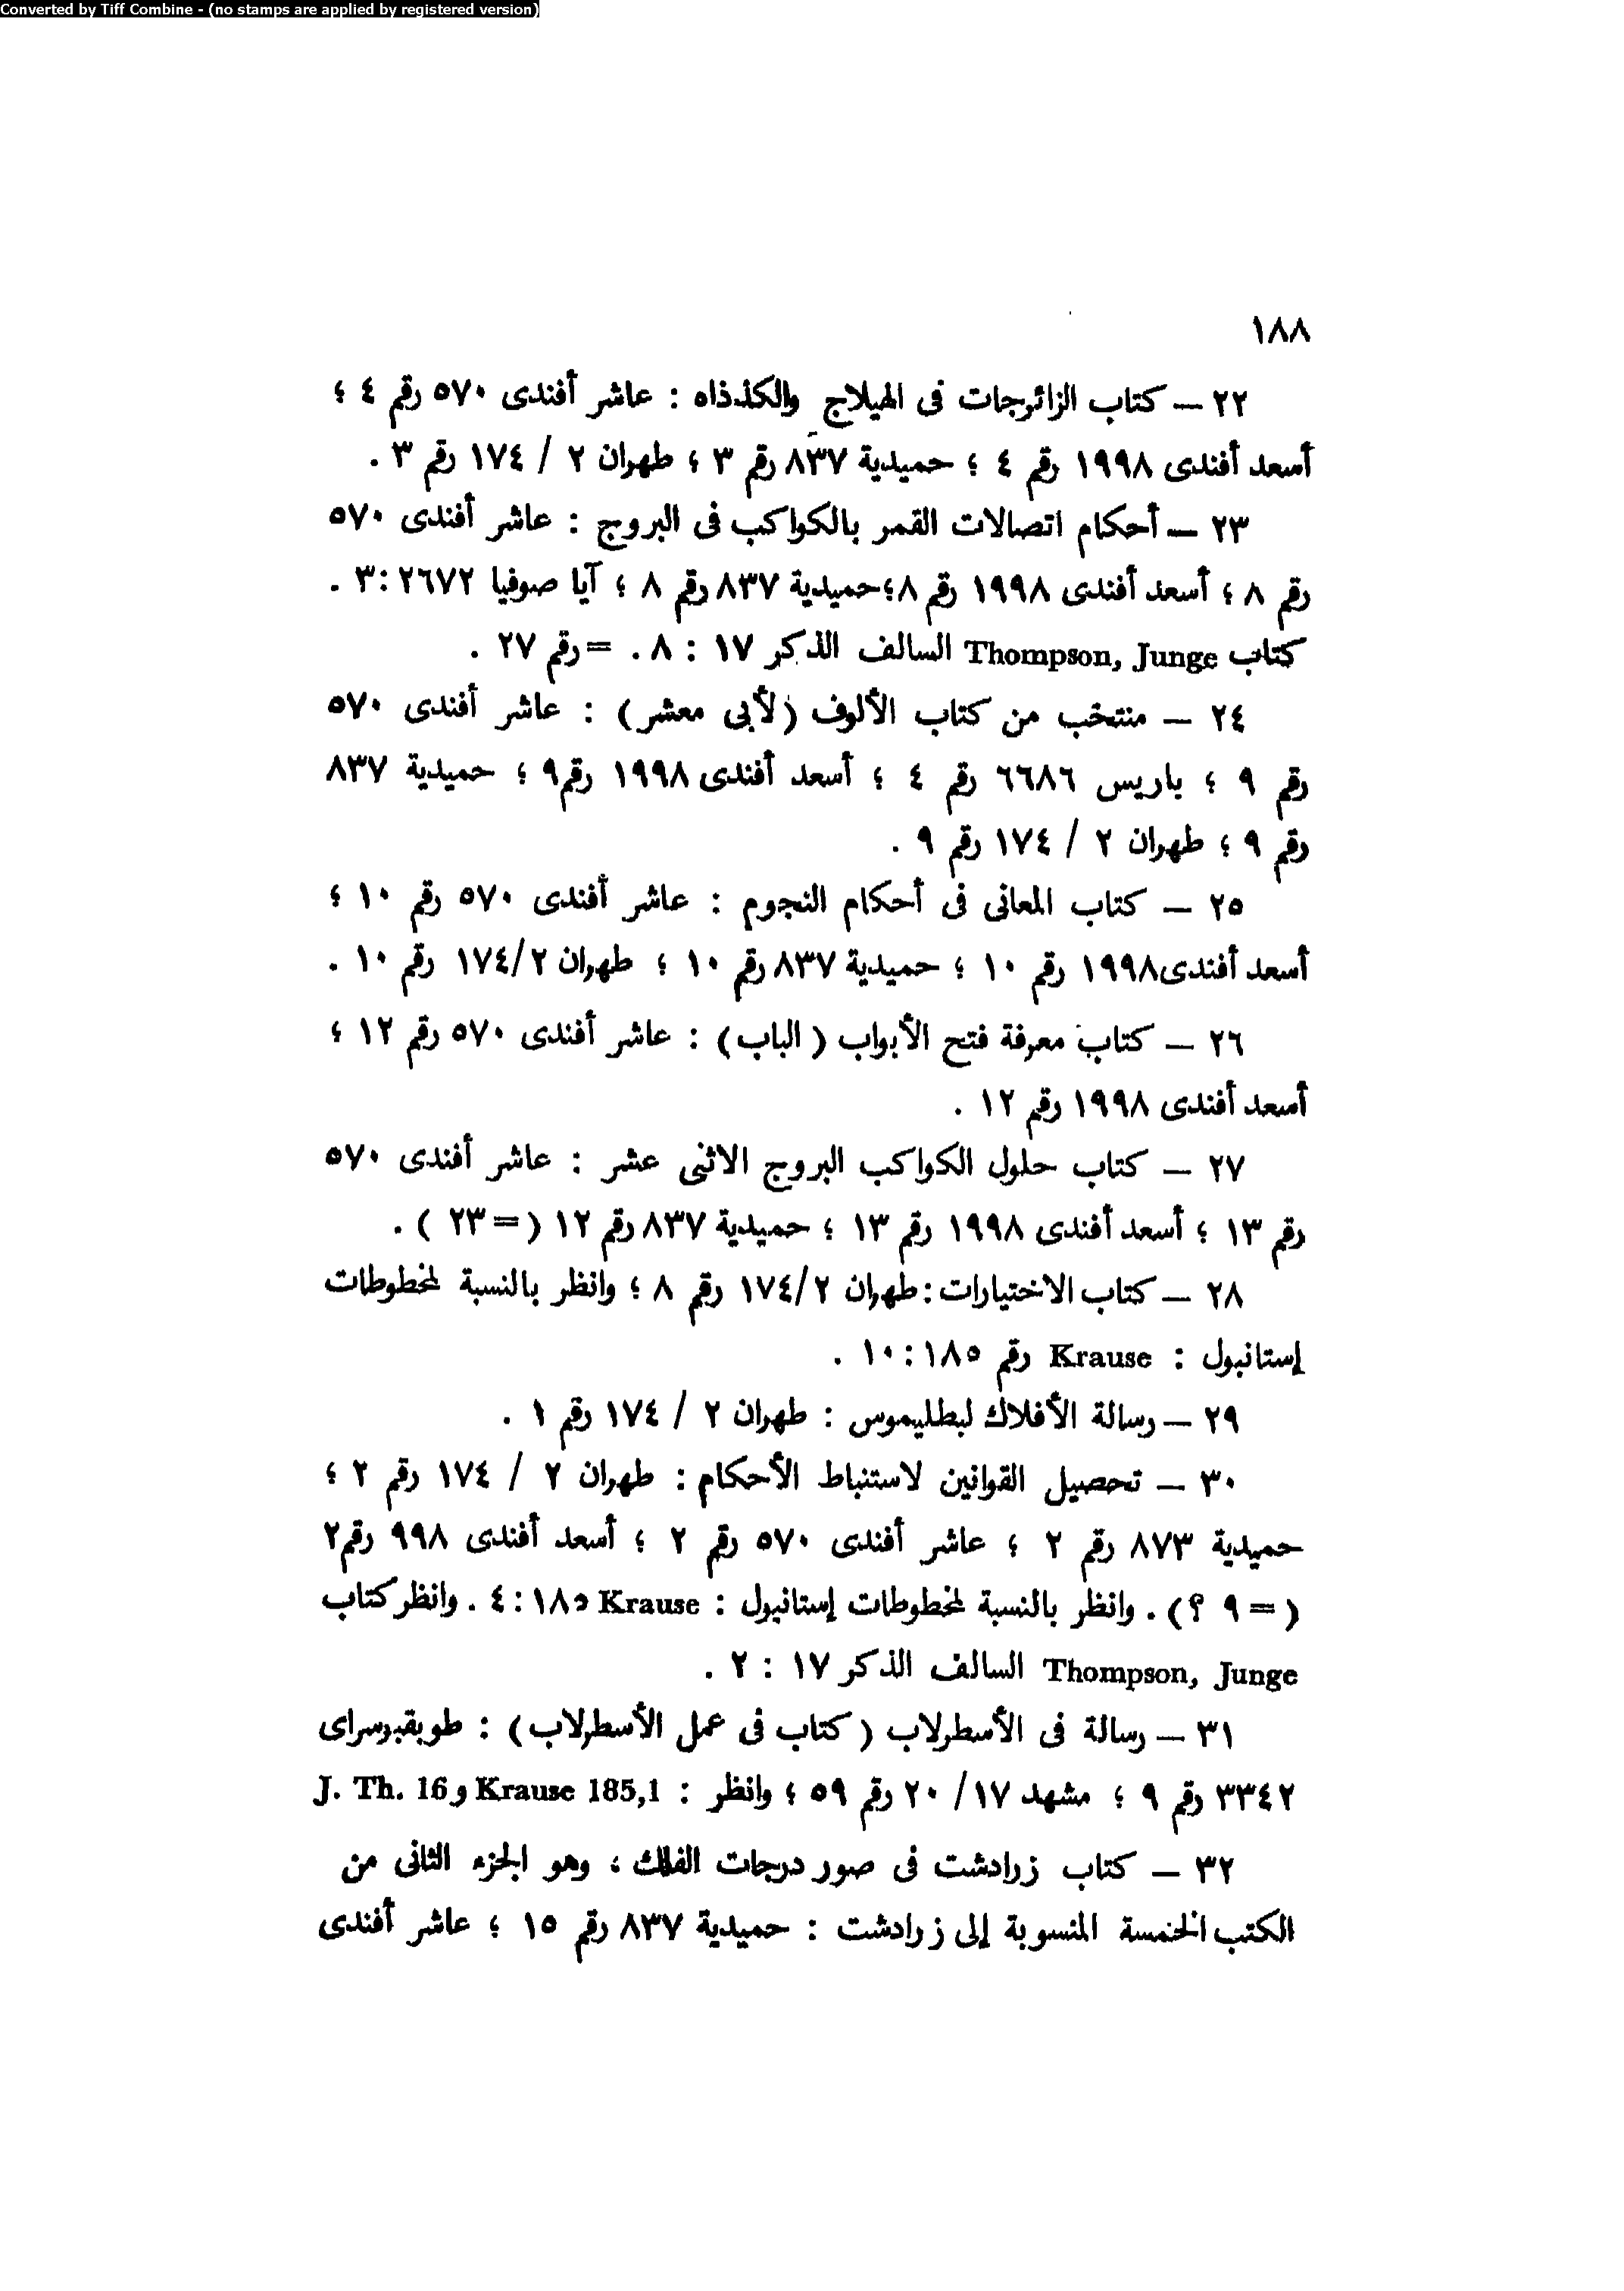 Converted by Tiff Combine - (no stamps are applied by registered version)
١٨٨
٢٢ – كتاب الزائرجات فى الهيلاج والكذذاه : عاشر أفندى ٥٧٠ رقم ٤ ؛
أسعد أفندى ١٩٩٨ رقم ٤ ؛ حميدية ٨٣٧ رقم ٣ ؛ طهران ٢ / ١٧٤ رقم ٣ .
٢٣ – أحكام اتصالات القمر بالكواكب فى البروج : عاشر أفندى ٥٧٠
رقم ٨ ؛ أسعد أفندى ١٩٩٨ رقم ٨ ؛ حميدية ٨٣٧ رقم ٨ ؛ آيا صوفيا ٢٦٧٢ : ٣ .
كتاب Thompson, Junge السالف الذكر ١٧ : ٨ . = رقم ٢٧ .
٢٤ – منتخب من كتاب الألوف (لأبى معشر) : عاشر أفندى ٥٧٠
رقم ٩ ؛ باريس ٦٦٨٦ رقم ٤ ؛ أسعد أفندى ١٩٩٨ رقم٩ ؛ حميدية ٨٣٧
رقم ٩ ؛ طهران ٢ / ١٧٤ رقم ٩ .
٢٥ – كتاب المعانى فى أحكام النجوم : عاشر أفندى ٥٧٠ رقم ١٠ ؛
أسعد أفندى١٩٩٨ رقم ١٠ ؛ حميدية ٨٣٧ رقم ١٠ ؛ طهران ١٧٤/٢ رقم ١٠ .
٢٦ – كتاب معرفة فتح الأبواب ( الباب) : عاشر أفندى ٥٧٠ رقم ١٢ ؛
أسعد أفندى ١٩٩٨ رقم ١٢ .
٢٧ – كتاب حلول الكواكب البروج الاثنى عشر : عاشر أفندى ٥٧٠
رقم ١٣ ؛ أسعد أفندى ١٩٩٨ رقم ١٣ ؛ حميدية ٨٣٧ رقم ١٢ ( = ٢٣ ) .
٢٨ – كتاب الاختيارات : طهران ١٧٤/٢ رقم ٨ ؛ وانظر بالنسبة لمخطوطات
إستانبول : Krause رقم ١٨٥ : ١٠ .
٢٩ – رسالة الأفلاك لبطليموس : طهران ٢ / ١٧٤ رقم ١ .
٣٠ – تحصيل القوانين لاستنباط الأحكام : طهران ٢ / ١٧٤ رقم ٢ ؛
حميدية ٨٧٣ رقم ٢ ؛ عاشر أفندى ٥٧٠ رقم ٢ ؛ أسعد أفندى ٩٩٨ رقم٢
( = ٩ ؟) . وانظر بالنسبة لمخطوطات إستانبول : Krause ١٨٥ : ٤ . وانظر كتاب
Thompson, Junge السالف الذكر ١٧ : ٢ .
٣١ – رسالة فى الأسطرلاب ( كتاب فى عمل الأسطرلاب) : طوبقبوسراى
٣٣٤٢ رقم ٩ ؛ مشهد ١٧/ ٢٠ رقم ٥٩ ؛ وانظر : Krause 185,1 و J. Th. 16
٣٢ – كتاب زرادشت فى صور درجات الفلك ، وهو الجزء الثانى من
الكتب الخمسة المنسوبة إلى زرادشت : حميدية ٨٣٧ رقم ١٥ ؛ عاشر أفندى